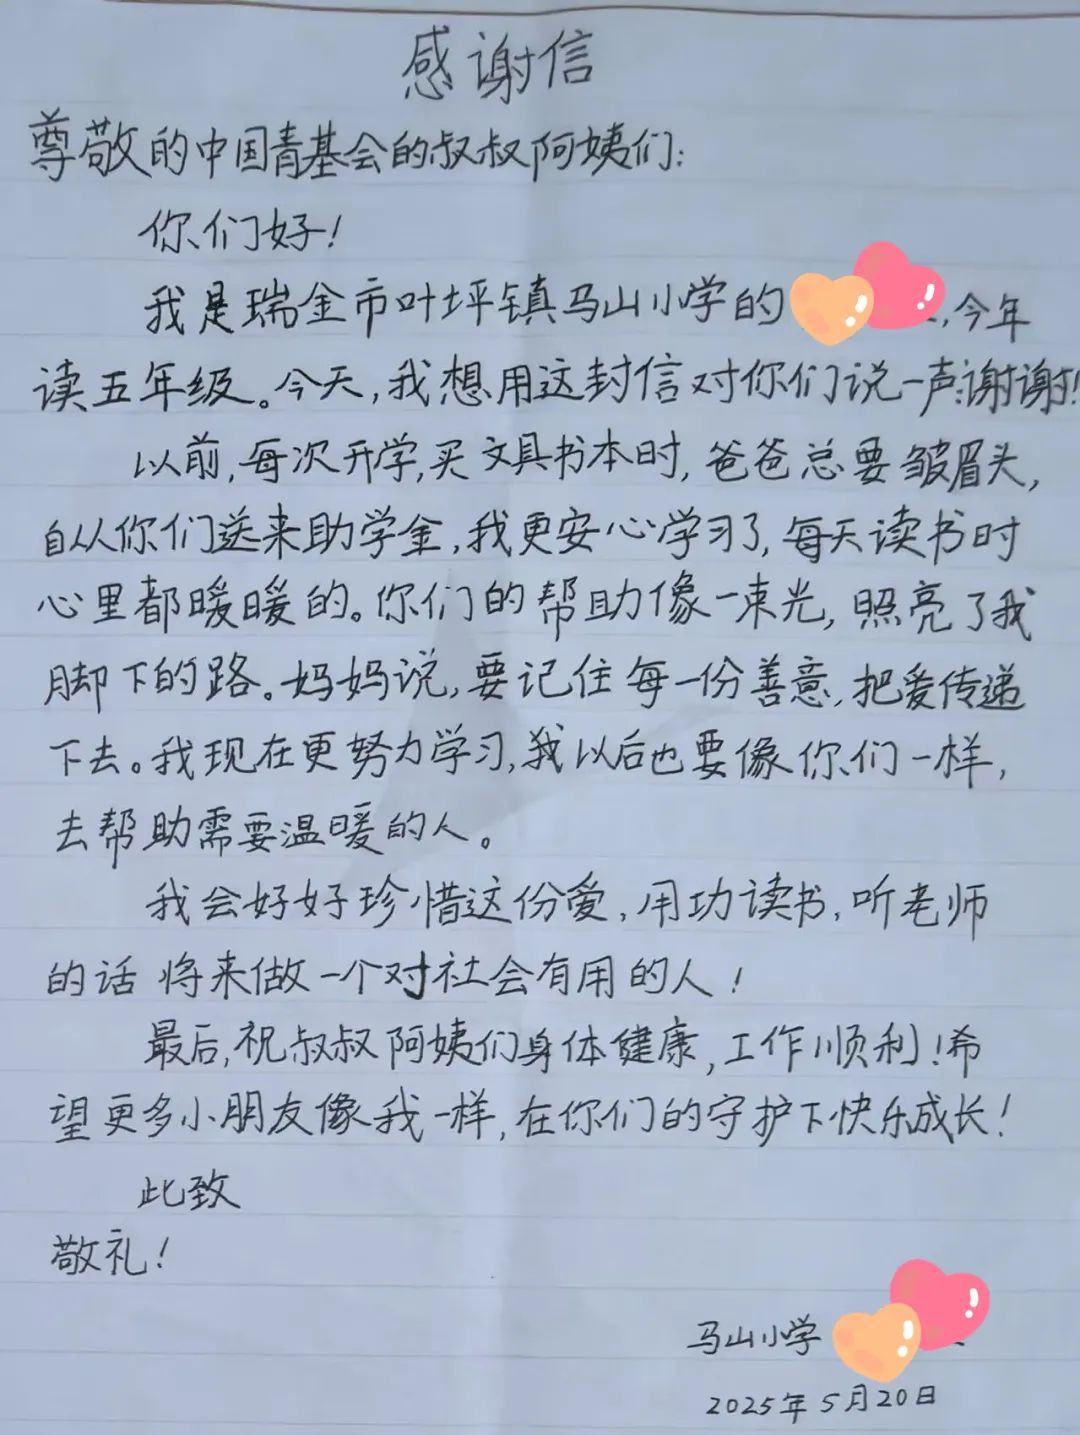 感谢信
尊敬的中国青基会的叔叔阿姨们:
你们好!
我是瑞金市叶坪镇马山小学的,今年
读五年级。今天,我想用这封信对你们说一声:谢谢!
以前,每次开学,买文具书本时,爸爸总要皱眉头,
自从你们送来助学金,我更安心学习了,每天读书时
心里都暖暖的。你们的帮助像一束光,照亮了我
脚下的路。妈妈说,要记住每一份善意,把爱传递
下去。我现在更努力学习,我以后也要像你们一样,
去帮助需要温暖的人。
我会好好珍惜这份爱,用功读书,听老师
的话 将来做一个对社会有用的人!
最后,祝叔叔阿姨们身体健康,工作顺利!希
望更多小朋友像我一样,在你们的守护下快乐成长!
此致
敬礼!
马山小学
2025年5月20日